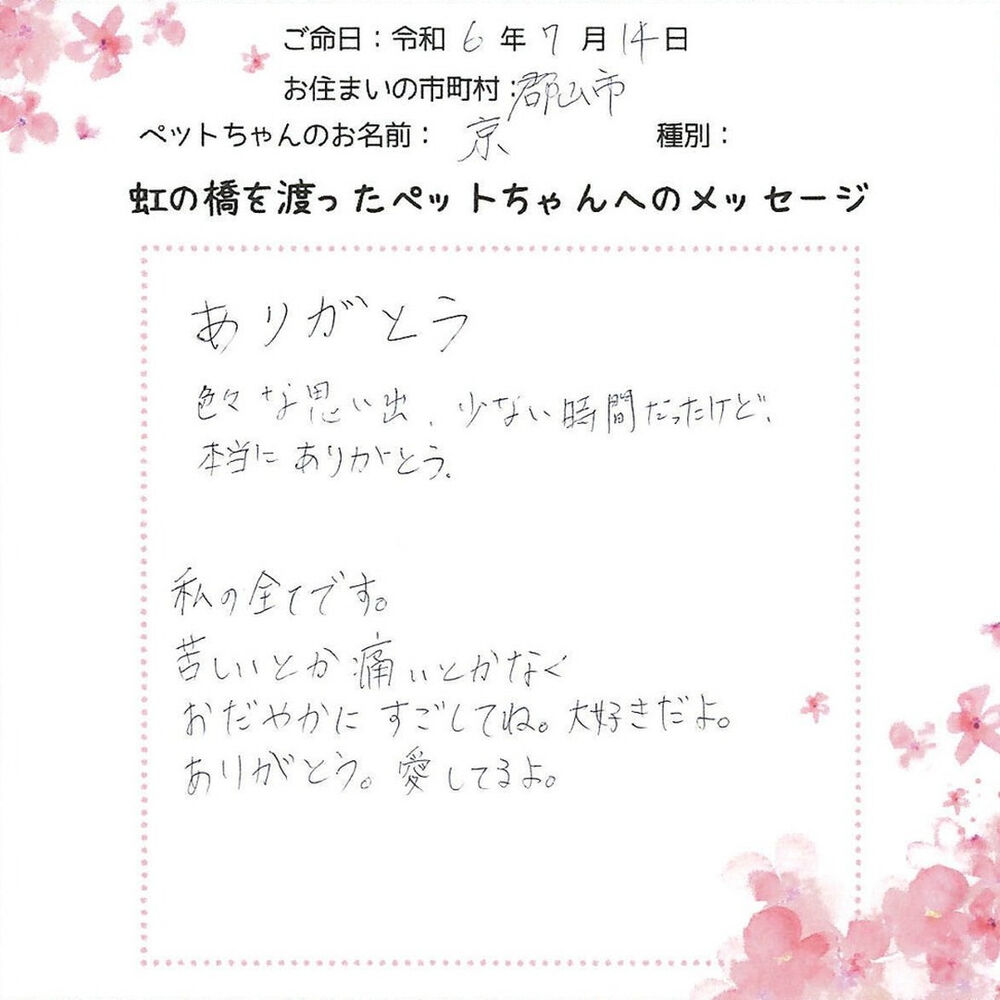 ご命日：令和 6 年 7 月 14 日
お住まいの市町村：郡山市
ペットちゃんのお名前： 京 種別：
虹の橋を渡ったペットちゃんへのメッセージ
ありがとう
色々な思い出、少ない時間だったけど、
本当にありがとう、
私の全てです。
苦しいとか痛いとかなく
おだやかにすごしてね。大好きだよ。
ありがとう。愛してるよ。